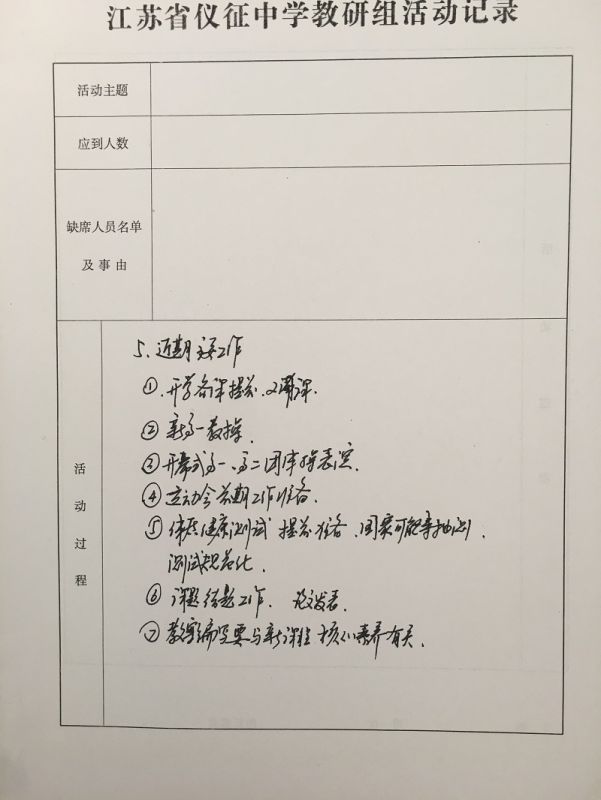 江苏省仪征中学教研组活动记录
活动主题
应到人数
缺席人员名单
及事由
活动过程
5、近期主要工作
①、开学备课提前、2周课.
② 新高一教操.
③ 开幕式高一、高二团体操表演.
④ 运动会前期工作准备.
⑤ 体质健康测试 提前准备、国家可能来抽测、
测试规范化.
⑥ 课题结题工作、 论文发表.
⑦ 教案编写要与新课程 核心素养有关.